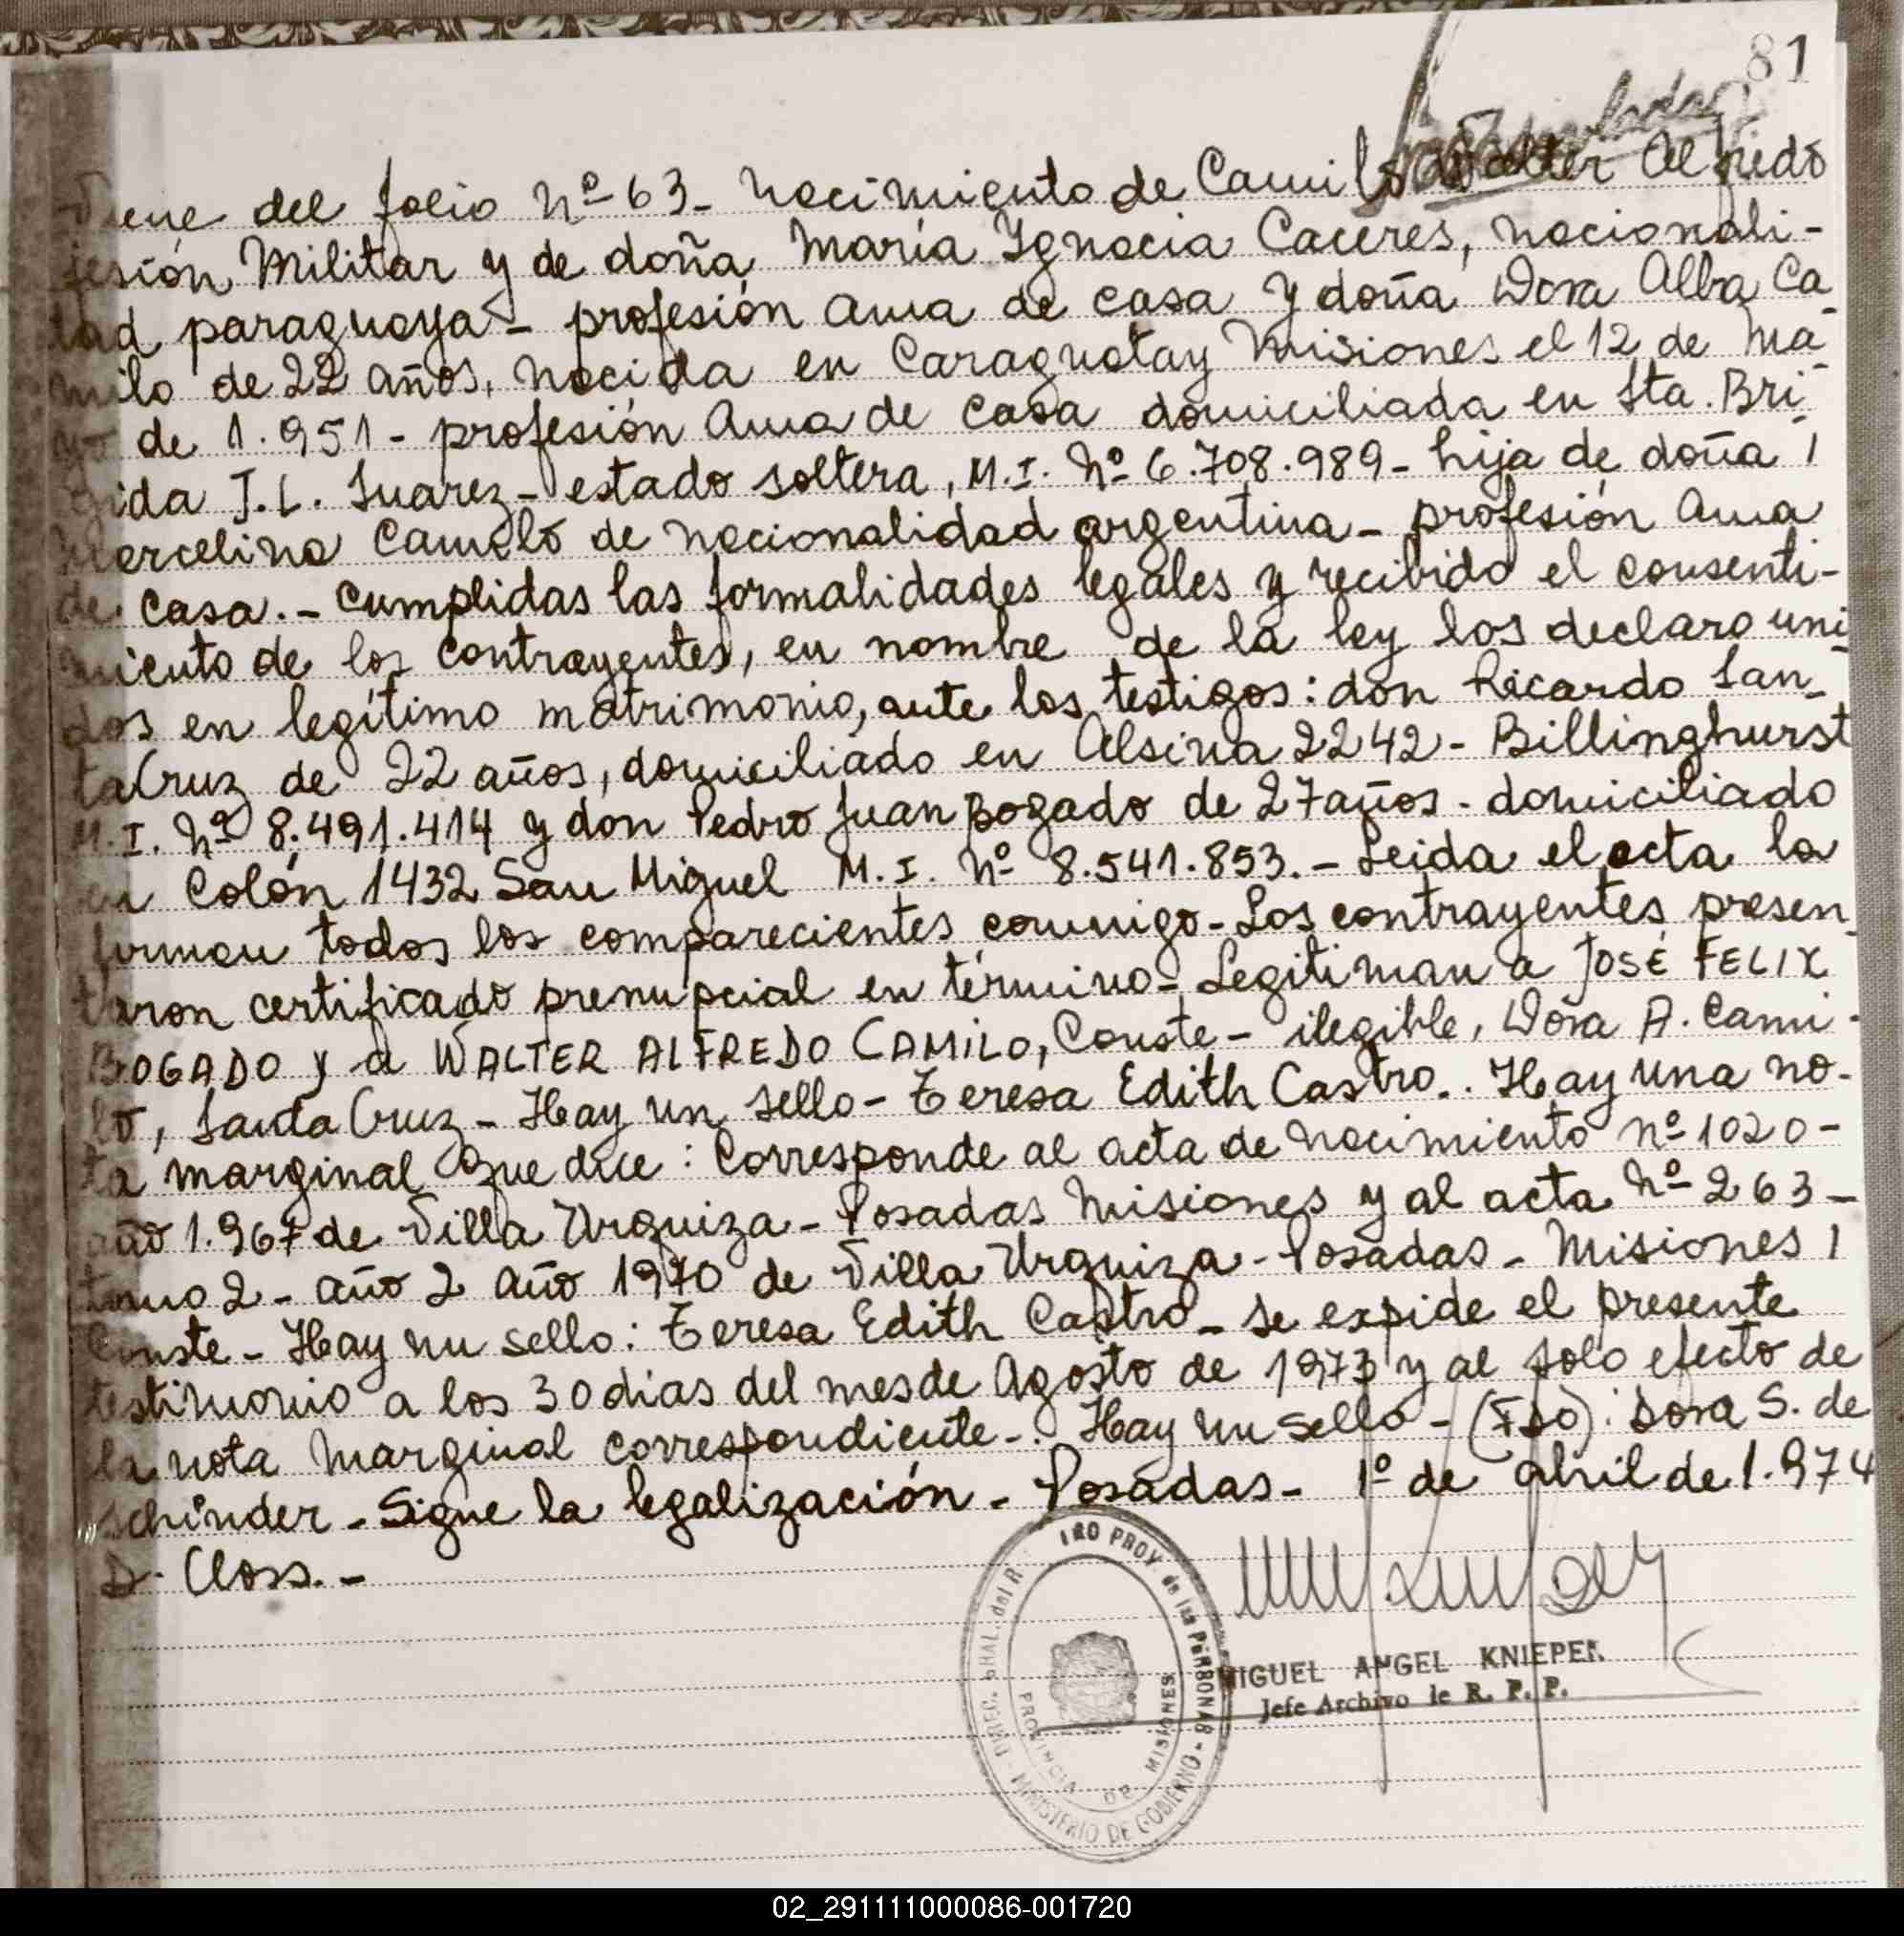 81
Viene del folio Nº 63 - Nacimiento de Camilo Walter Alfredo
fesión Militar y de doña María Ignacia Caceres, nacionali-
dad paraguaya - profesión Ama de casa y doña Dora Alba Ca-
milo de 22 años, nacida en Caraguatay Misiones el 12 de Ma-
yo de 1.951 - profesión Ama de casa domiciliada en Sta. Bri-
gida J.L. Suarez - estado soltera, M.I. Nº 6.708.989 - hija de doña
Marcelina Camilo de nacionalidad argentina - profesión Ama
de casa. - Cumplidas las formalidades legales y recibido el consenti-
miento de los contrayentes, en nombre de la ley los declaro uni-
dos en legítimo matrimonio, ante los testigos: don Ricardo San-
ta Cruz de 22 años, domiciliado en Alsina 2242 - Billinghurst
M.I. Nº 8.491.414 y don Pedro Juan Bogado de 27 años - domiciliado
en Colón 1432 San Miguel M.I. Nº 8.541.853. - Leida el acta la
firman todos los comparecientes conmigo - Los contrayentes presen-
taron certificado prenupcial en término - Legitiman a JOSÉ FELIX
BOGADO y a WALTER ALFREDO CAMILO, Conste - ilegible, Dora A. Cami-
lo, Santa Cruz - Hay un sello - Teresa Edith Castro. - Hay una no-
ta marginal que dice: Corresponde al acta de nacimiento nº 1020 -
año 1.967 de Villa Urquiza - Posadas Misiones y al acta Nº 263 -
tomo 2 - año 2 año 1970 de Villa Urquiza - Posadas - Misiones
Conste - Hay un sello: Teresa Edith Castro - Se expide el presente
testimonio a los 30 dias del mes de Agosto de 1973 y al solo efecto de
la nota marginal correspondiente - . Hay un sello - (FDO): Dora S. de
Schinder - Sigue la legalización - Posadas - 1º de abril de 1.974
D. Closs. -
MIGUEL ANGEL KNIEPER
Jefe Archivo de R. P. P.
PROVINCIA DE MISIONES
MINISTERIO DE GOBIERNO
02_291111000086-001720